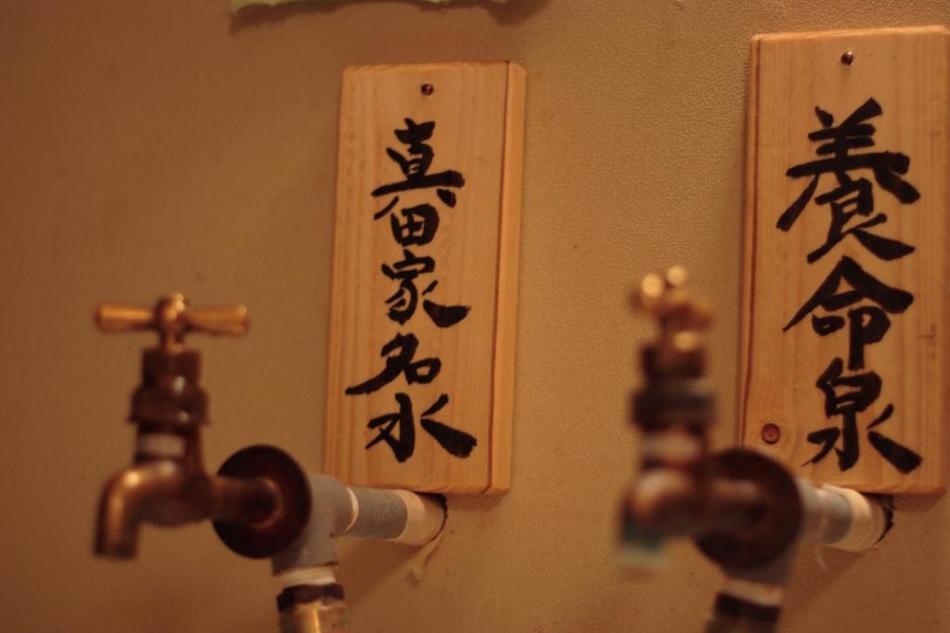 真田家名水
養命泉